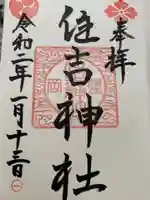 奉拝
住吉神社
令和二年一月十三日